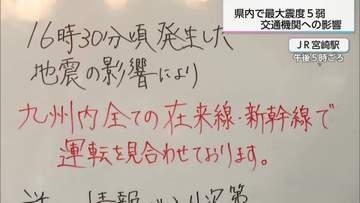 県内で最大震度5弱
交通機関への影響
JR宮崎駅
午後5時ごろ
16時30分頃発生した
地震の影響により
九州内全ての在来線・新幹線で
運転を見合わせております。
情報が入り次第